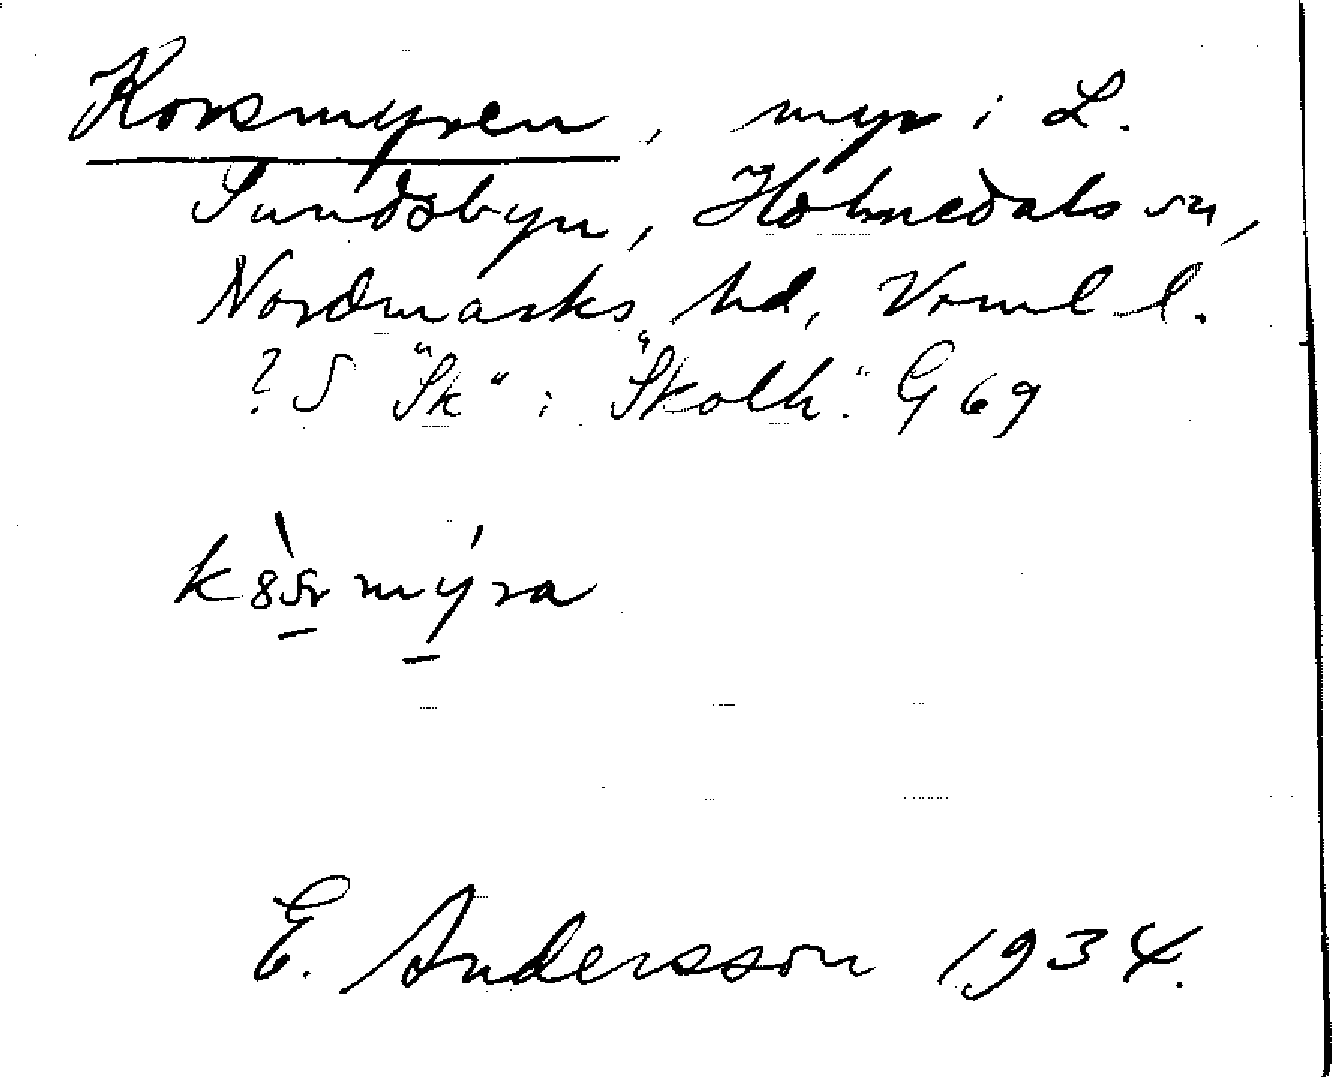 Korsmyren, myr i L.
Sundsbyn, Holmedals sn,
Nordmarks hd, Vrml l.
? S "Sk" i "Skolh." G 69
myra
E. Andersson 1934.